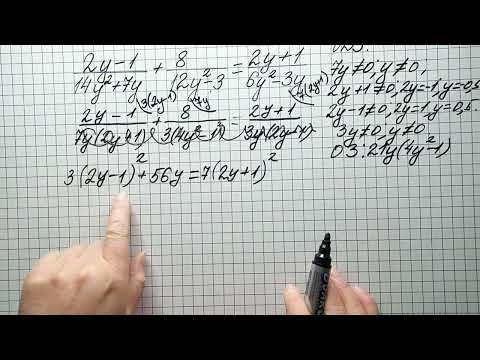 (2y-1)/(14y²+7y) + 8/(12y²-3) = (2y+1)/(6y²-3y)
(2y-1)/(7y(2y+1)) + 8/(3(4y²-1)) = (2y+1)/(3y(2y-1))
3(2y-1) 7y 7(2y+1)
3(2y-1)²+56y=7(2y+1)²
7y≠0; y≠0;
2y+1≠0; 2y=-1; y=0,5
2y-1≠0; 2y=1; y=0,5.
3y≠0; y≠0
ОЗ: 21y(4y²-1)